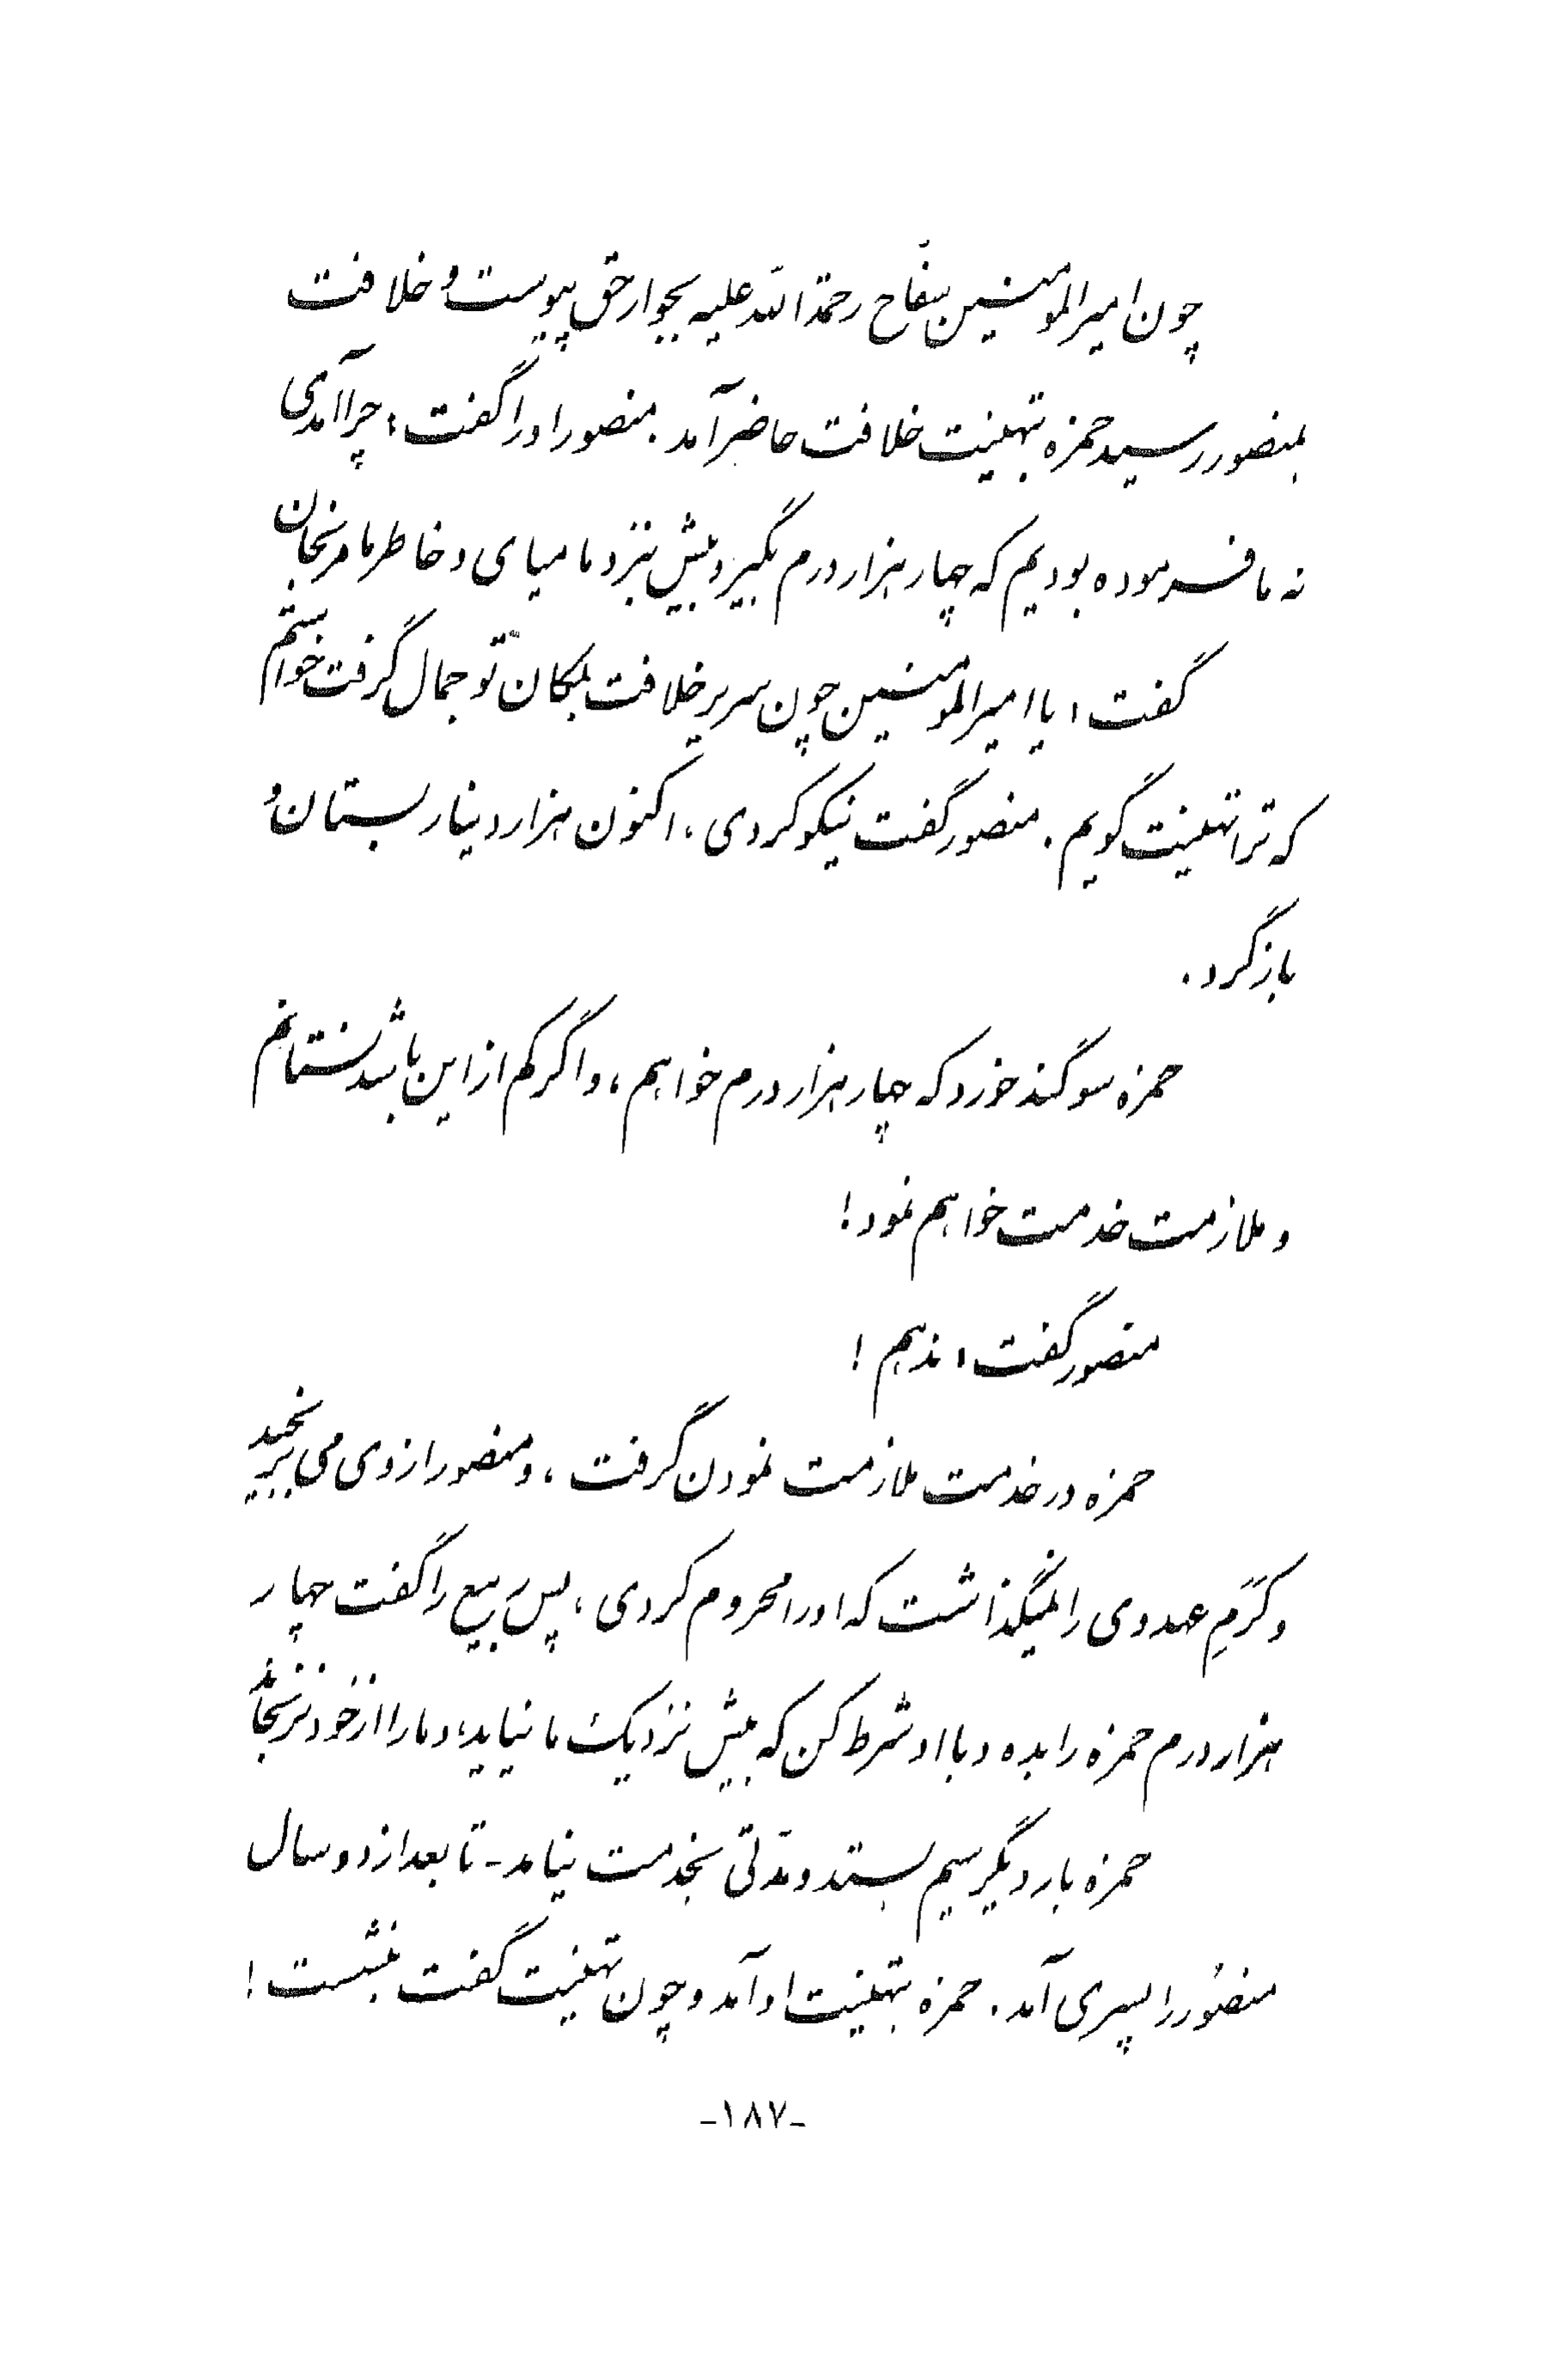 چون امیرالمومنین سفّاح رحمة الله علیه بجوار حق پیوست و خلافت
بمنصور رسید حمزه بتهنیت خلافت حاضر آمد. منصور او را گفت: چرا آمدی
نه ما فرموده بودیم که چهار هزار درم بگیر و بیش نزد ما میای و خاطر ما مرنجان
گفت: یا امیرالمومنین چون سریر خلافت بمکان تو جمال گرفت خواستم
که ترا تهنیت گویم. منصور گفت نیکو کردی، اکنون هزار دینار بستان و
بازگرد.
حمزه سوگند خورد که چهار هزار درم خواهم، و اگر کم از این باشد نستانم
و ملازمت خدمت خواهم نمود!
منصور گفت: ندهم!
حمزه در خدمت ملازمت نمودن گرفت، و منصور از وی می برنجید
و کَرَمِ عهد وی را نمیگذاشت که او را محروم کردی، پس ربیع را گفت چهار
هزار درم حمزه را بده و با او شرط کن که بیش نزدیک ما نیاید، و ما را از خود نرنجاند
حمزه بار دیگر سیم بستد و مدّتی بخدمت نیامد - تا بعد از دو سال
منصور را پسری آمد. حمزه بتهنیت او آمد و چون تهنیت گفت بنشست!
-۱۸۷-